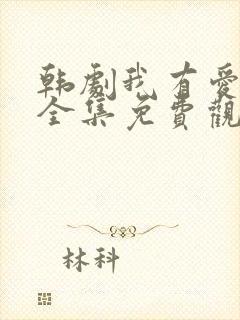 韩劇我有爱
全集免費觀
林科